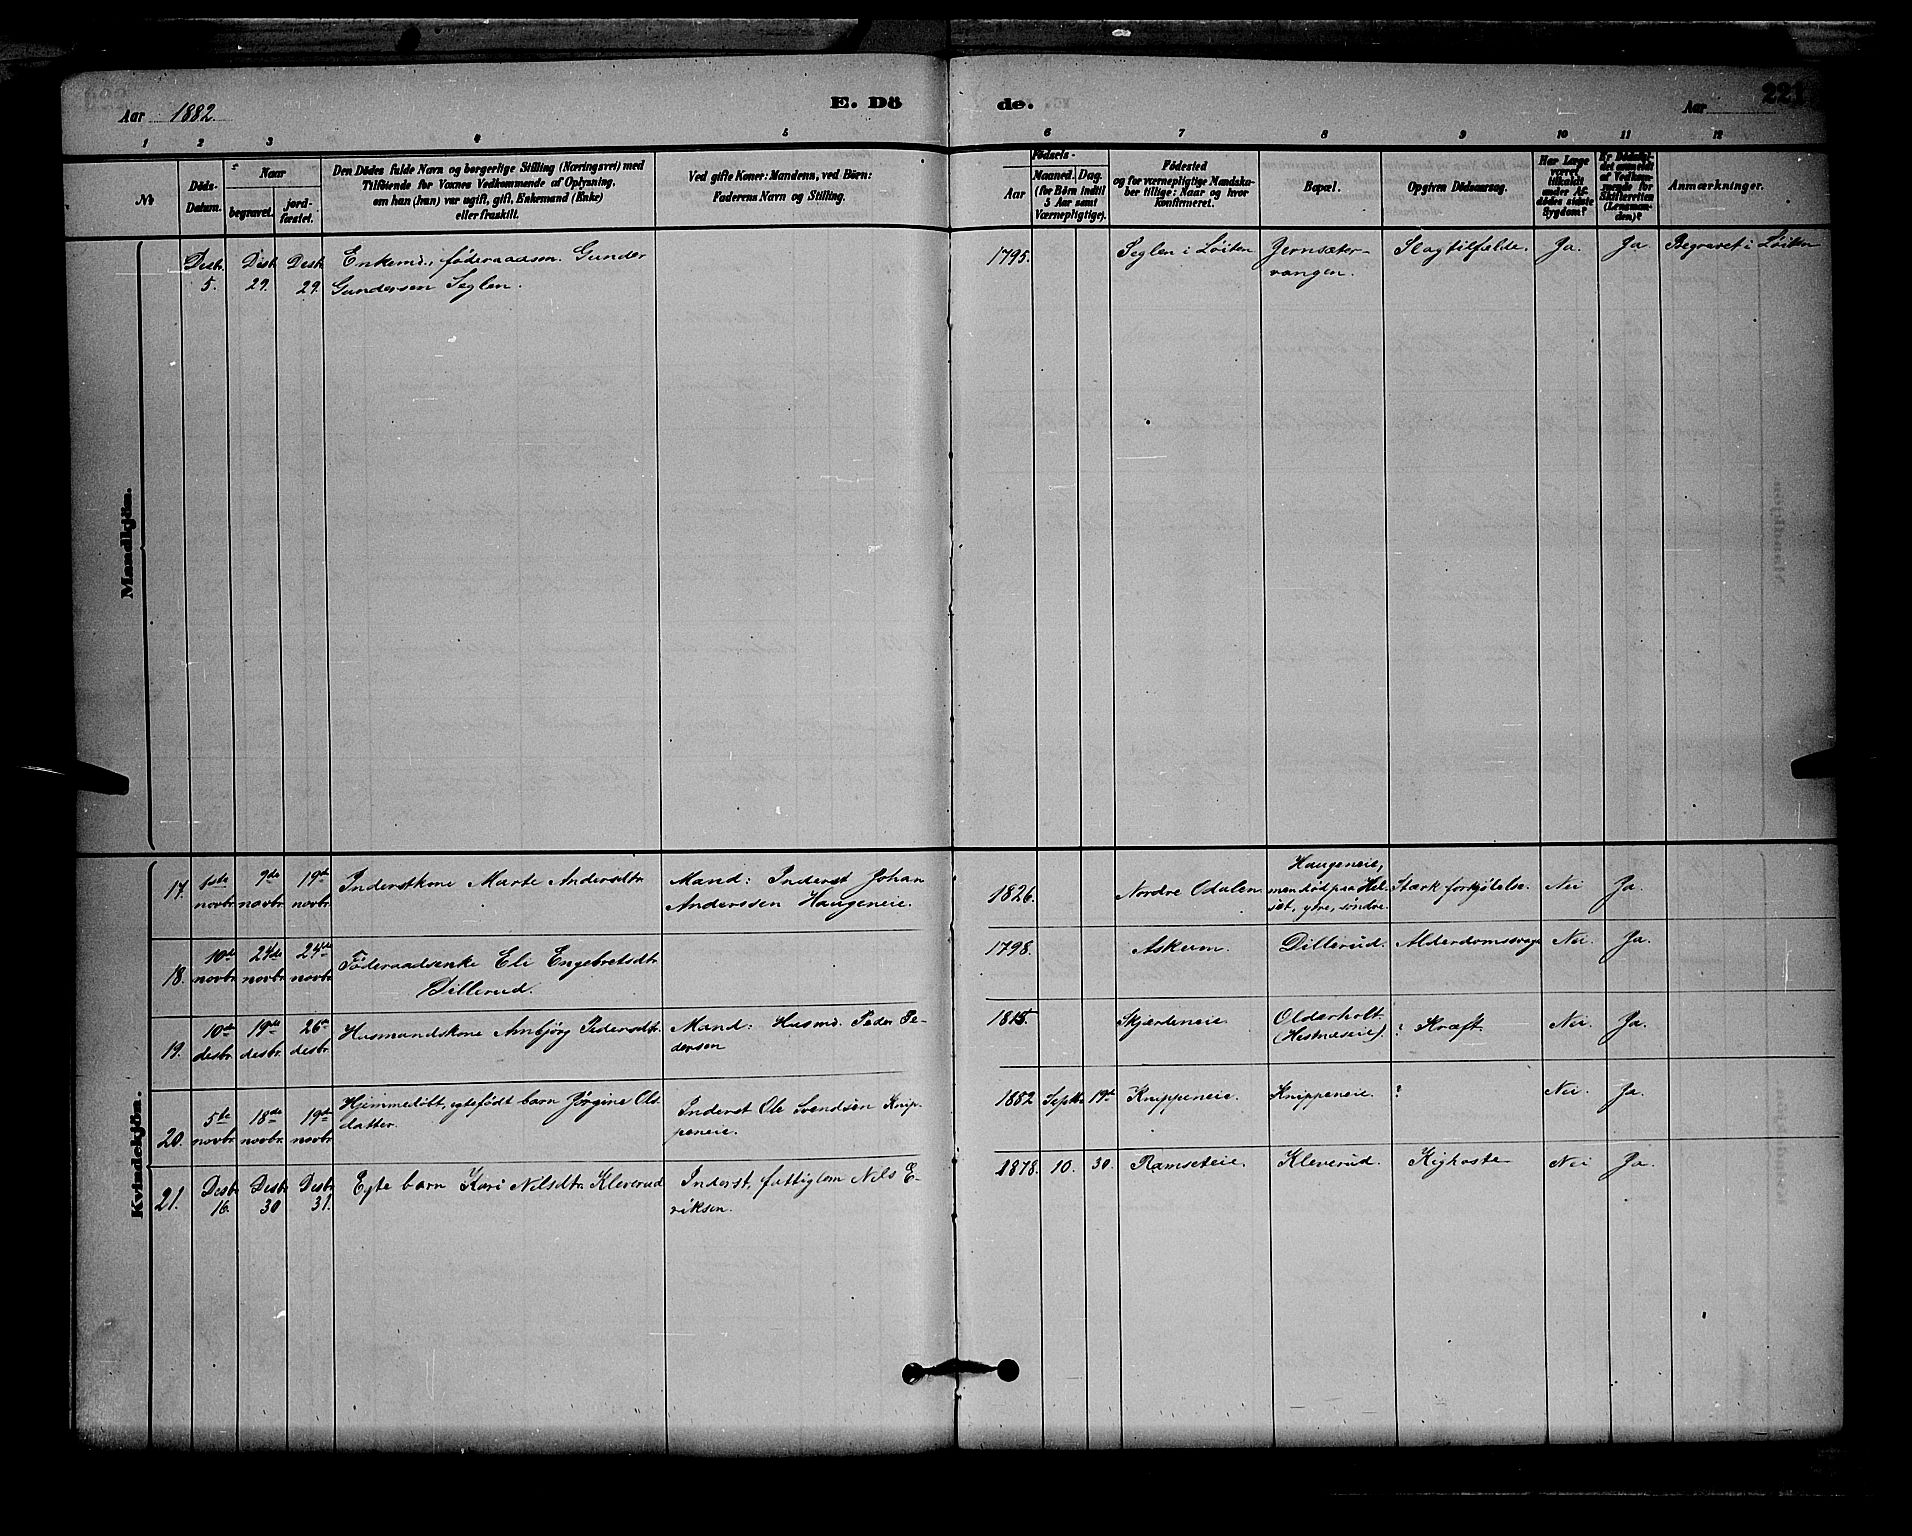 Aar 1882.
E. Dö
de.
Aar
221
1 2 3 4 5 6 7 8 9 10 11 12
No
Döds-
Datum.
Naar
begravet.
jord-
fæstet.
Den Dödes fulde Navn og borgerlige Stilling (Næringsvei) med
Tilföiende for Voxnes Vedkommende af Oplysning,
om han (hun) var ugift, gift, Enkemand (Enke)
eller fraskilt.
Ved gifte Koner: Mandens, ved Börn:
Faderens Navn og Stilling.
Födsels-
Aar
Maaned. Dag.
(for Börn indtil
5 Aar samt
Værnepligtige).
Födested
og for værnepligtige Mandska-
ber tillige: Naar og hvor
konfirmeret.
Bopæl.
Opgiven Dödsaarsag.
Har Læge
været
tilkaldt
under Af-
dödes sidste
Sygdom?
Er Dödsfal-
det anmeldt
af Vedkom-
mende for
Skifteretten
(Lensman-
den)?
Anmærkninger.
Mandkjön.
Desbr. 5. Desb. 29. Desb. 29. Enkemd. föderaadsm. Gunder
Gundersen Seglen.
1795. Seglen i Löiten Jernsæter-
vangen. Slagtilfælde. Ja. Ja. Begravet i Löiten
Kvindekjön.
17. novbr. 9de novbr. 19de novbr. Inderstkone Marte Andersdtr. Mand: Inderst Johan
Anderssen Haugeneie.
1826. Nordre Odalen Haugeneie,
men död paa Hel-
set, ytre, söndre. Stærk forkjölelse. Nei Ja.
18. 10de novbr. 24de novbr. 24de novbr. Föderaadsenke Eli Engebretsdtr.
Dillerud.
1798. Askum. Dillerud. Alderdomssvagh. Nei Ja.
19. 10de desbr. 19de desbr. 26de desbr. Husmandskone Anbjörg Pedersdtr. Mand: Husmd. Peder Pe-
dersen
1815 Skjærdeneie. Olderholt
(Hestnæseie). ? Kræft. Nei. Ja.
20. 5te novbr. 18de novbr. 19de novbr. Hjemmedöbt, egtefödt barn Jörgine Ols-
datter. Inderst Ole Svendsen Knip-
peneie.
1882 Septbr. 19de Knippeneie. Knippeneie. ? Nei. Ja.
21. Desbr. 16. Desbr. 30 Desbr. 31. Egte barn Kari Nilsdtr. Kleverud Inderst, fattiglem Nils E-
riksen.
1878. 10. 30. Ramseteie. Kleverud. Kighoste Nei Ja.